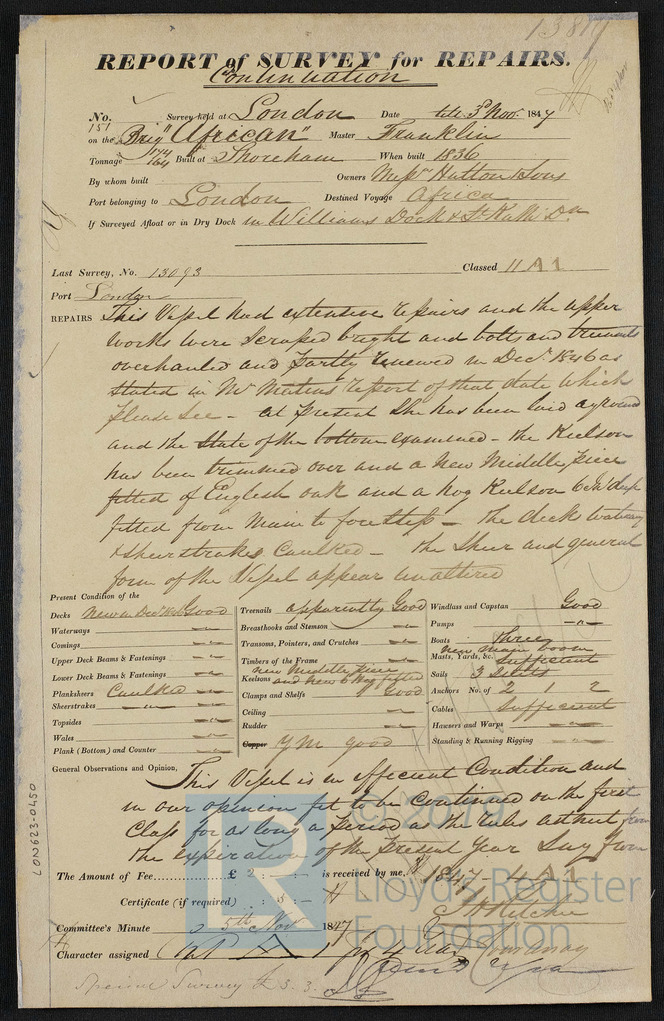 REPORT of SURVEY for REPAIRS.
Continuation
No. 151 Survey held at London Date till 3d Novr 1847
on the Brig "African" Master Franklin
Tonnage 164 Built at Shoreham When built 1836
By whom built Owners Messrs Hutton & Sons
Port belonging to London Destined Voyage Africa
If Surveyed Afloat or in Dry Dock in Williams Dock & St Kath. Do
Last Survey, No. 13093 Classed 11 A1
Port London
REPAIRS This Vessel had extensive repairs and the upper
works were scraped bright and bolts and treenails
overhauled and partly renewed in Decr 1846 as
stated in Mr report of that date which
please see - at present she has been laid aground
and the state of the bottom examined - the Keelson
has been trimmed over and a new Middle piece
fitted of English oak and a hog Keelson 6 In deep
fitted from Main to fore step - the deck waterway
& sheerstrakes Caulked - the Sheer and general
form of the Vessel appear unaltered
Present Condition of the
Decks new in Decr 1846 Good
Waterways
Comings
Upper Deck Beams & Fastenings
Lower Deck Beams & Fastenings
Planksheers Caulked
Sheerstrakes
Topsides
Wales
Plank (Bottom) and Counter
Treenails apparently Good
Breasthooks and Stemson
Transoms, Pointers, and Crutches
Timbers of the Frame
Keelsons new Middle piece and new Hog fitted
Clamps and Shelfs Good
Ceiling
Rudder
Copper Y M good
Windlass and Capstan Good
Pumps
Boats Three
Masts, Yards, &c. new main boom sufficient
Sails 3
Anchors No. of 2 1 2
Cables Sufficient
Hawsers and Warps
Standing & Running Rigging
General Observations and Opinion, This Vessel is in efficient Condition and
in our opinion fit to be continued on the first
Class for as long a period as the rules admit from
the expiration of the present Year Say from
The Amount of Fee £ 2 : - : - is received by me, 1847 - 4 A1
Certificate (if required) : 5 : -
Committee's Minute 5th Nov 1847
Character assigned
Special Survey
LON623-0450
© 2019
LR
Lloyd's Register
Foundation